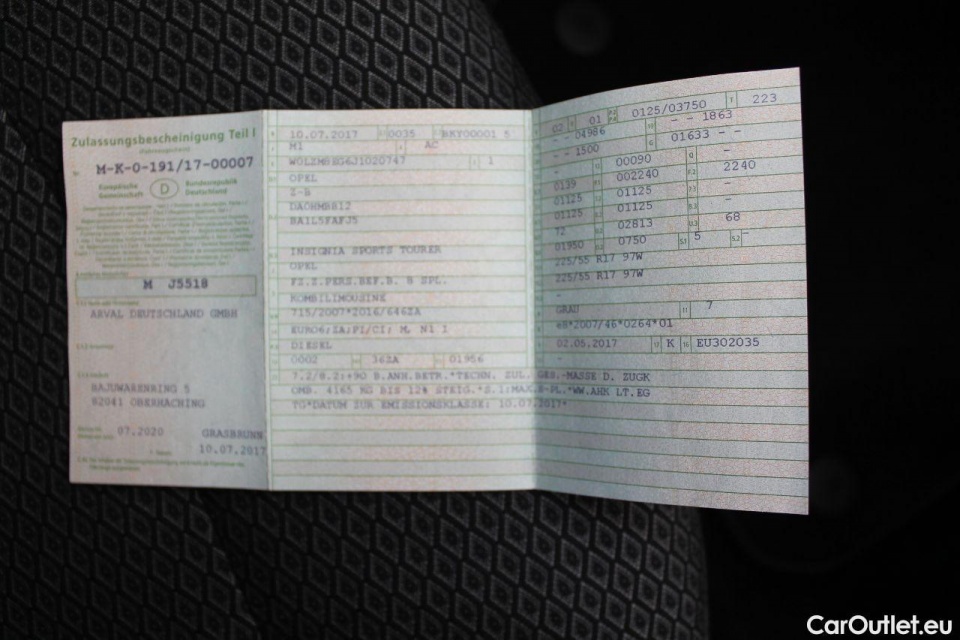 Zulassungsbescheinigung Teil I
(Fahrzeugschein)
M-K-0-191/17-00007
Europäische Gemeinschaft D Bundesrepublik Deutschland
M J5518
ARVAL DEUTSCHLAND GMBH
BAJUWARENRING 5
82041 OBERHACHING
07.2020
GRASBRUNN
10.07.2017
10.07.2017 0035 BKY00001 5
M1 AC
1
OPEL
Z-B
DAOHMB12
BAIL5FAFJ5
INSIGNIA SPORTS TOURER
OPEL
FZ.Z.PERS.BEF.B. 8 SPL.
KOMBILIMOUSINE
715/2007*2016/646ZA
EURO6;ZA;PI/CI; M, N1 I
DIESEL
0002 36ZA 01956
7.2/8.2:+90 B.ANH.BETR.*TECHN. ZUL. GES.-MASSE D. ZUGK
OMB. 4165 KG BIS 12% STEIG.*S.1:MAX.5-PL.*WW.AHK LT.EG
TG*DATUM ZUR EMISSIONSKLASSE: 10.07.2017*
02 01 0125/03750 T 223
- - 04986 - - 1863
- - 1500 01633 - -
00090 -
0139 002240 2240
01125 01125 -
01125 01125 -
72 02813 68
01950 0750 S.1 5 S.2 -
225/55 R17 97W
225/55 R17 97W
-
GRAU 7
e8*2007/46*0264*01
02.05.2017 K EU302035
-
CarOutlet.eu